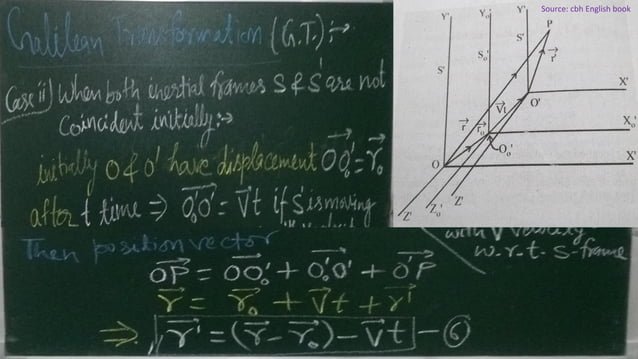 Galilean Transformation (G.T.):→
Case ii) When both inertial frames S & S' are not
Coincident initially:→
initially O & O' have displacement OO₀'⃗ = r⃗₀
after t time ⇒ O₀'O'⃗ = V⃗t if S' is moving
with V⃗ velocity
w.r.t. S-frame
Then position vector
OP⃗ = OO₀'⃗ + O₀'O'⃗ + O'P⃗
r⃗ = r⃗₀ + V⃗t + r⃗'
⇒ r⃗' = (r⃗ - r⃗₀) - V⃗t - ⑥
Source: cbh English book
Y' Y₀' Y'
P
S' S₀' S'
r⃗'
X'
V⃗t O'
r⃗ r⃗₀ X₀'
O₀'
O X'
Z' Z₀' Z'